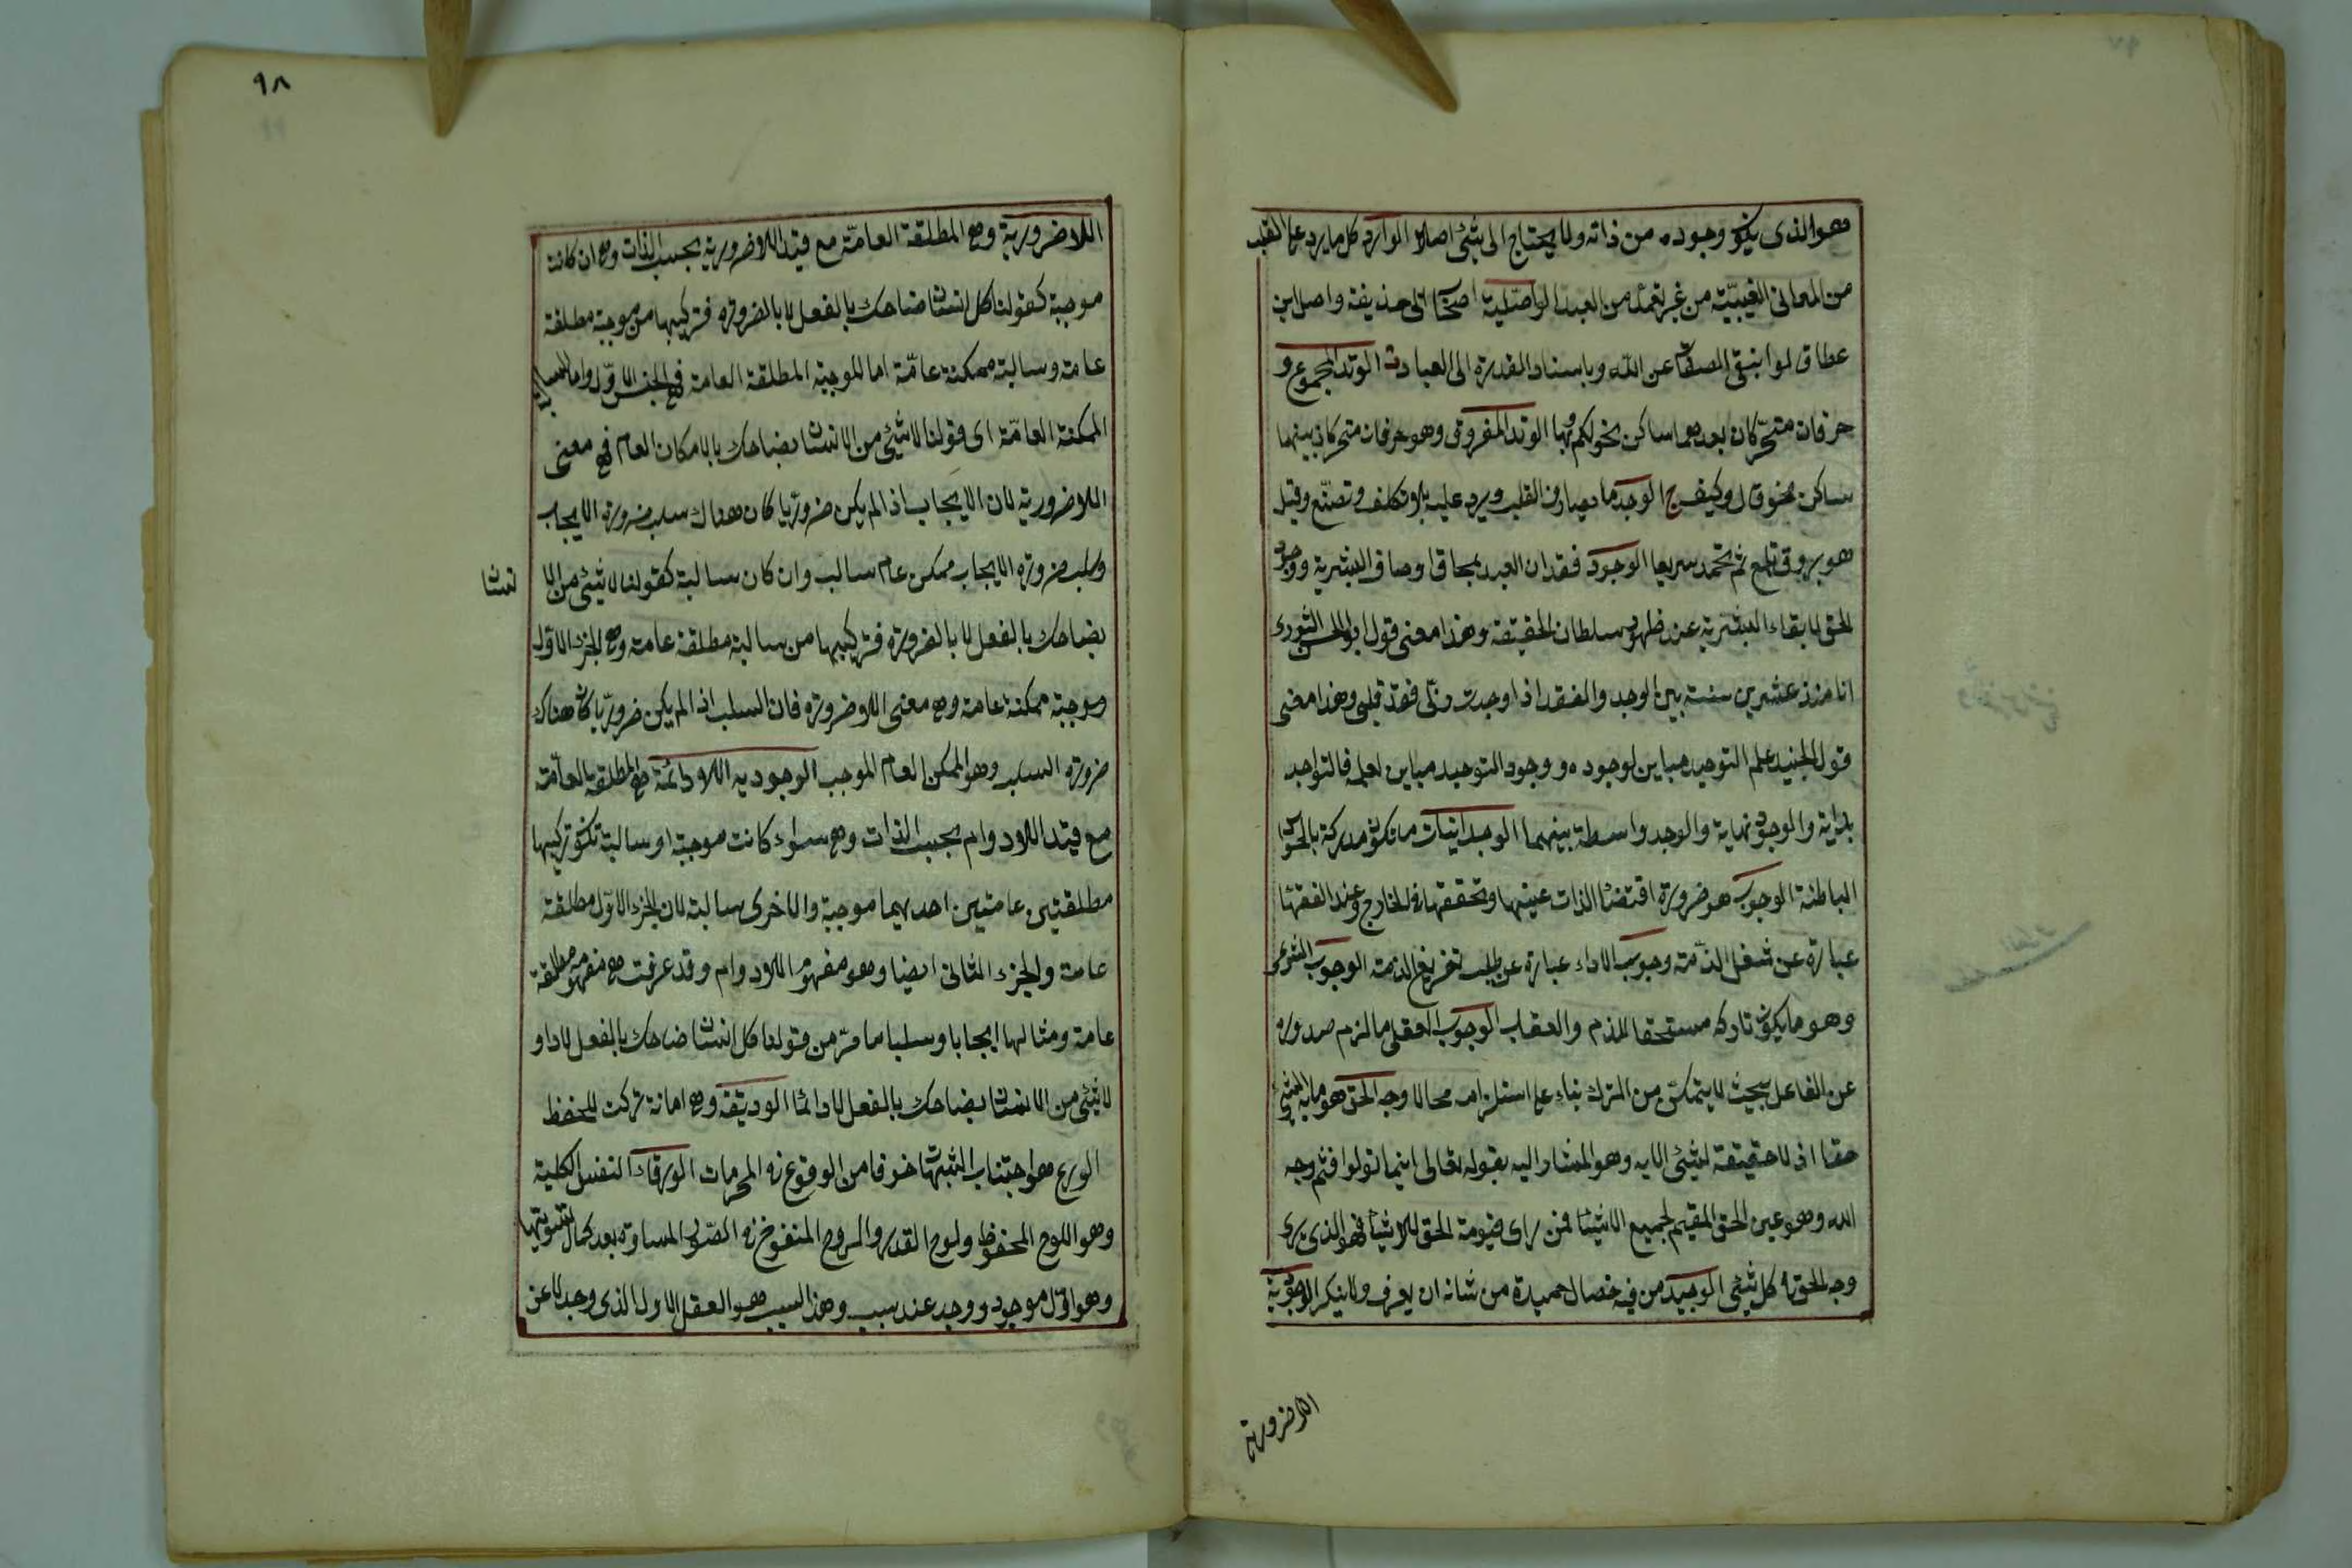 هو الذى يكون وجوده من ذاته ولا يحتاج الى شئ اصلا الوارد كل ما يرد على القلب
من المعانى الغيبيّة من غير تعمّد من العبد الواصليّة اصحاب ابى حذيفة واصل ابن
عطا قالوا بنفى الصفات عن الله وباسناد القدرة الى العباد الوتد المجموع و
حرفان متحرّكان بعدهما ساكن نحو لكم وبها الوتد المفروق وهو حرفان متحركان بينهما
ساكن نحو قال وكيف الوجد ما يصادف القلب ويرد عليه بلا تكلف وتصنّع وقيل
هو بروق تلمع ثم تخمد سريعا الوجود فقدان العبد بمحاق اوصاف البشرية ووجود
الحق لا بقاء للبشرية عند ظهور سلطان الحقيقة وهذا معنى قول ابو الحسن الثورى
انا منذ عشرين سنة بين الوجد والفقد اذا وجدت ربّى فقد قلبى وهذا معنى
قول الجنيد علم التوحيد مباين لوجوده ووجود التوحيد مباين لعلمه فالتواجد
بداية والوجود نهاية والوجد واسطة بينهما الوجدانيات ما تكون مدركة بالحواس
الباطنة الوجوب هو ضرورة اقتضاء الذات عينها وتحققها فى الخارج وعند الفقهاء
عبارة عن شغل الذّمة وجوب الاداء عبارة عن طلب تفريغ الذمة الوجوب الشرعى
وهو ما يكون تاركه مستحقا للذم والعقاب الوجوب العقلى ما لزم صدوره
عن الفاعل بحيث لا يتمكّن من الترك بناء على استلزامه محالا وجه الحق هو ما به الشئ
حقا اذ لا حقيقة لشئ الا به وهو المشار اليه بقوله تعالى اينما تولوا فثم وجه
الله وهو عين الحق المقيم لجميع الاشياء فمن راى قيومة الحق للاشياء فهو الذى يرى
وجه الحق فى كل شئ الوجيد من فيه خصال حميدة من شانه ان يعرف ولا ينكر الوجودية
اللاضرورية
٩٨
اللاضرورية وهى المطلقة العامّة مع قيد اللاضرورية بحسب الذات وهى ان كانت
موجبة كقولنا كل انسان ضاحك بالفعل لا بالضرورة فتركيبها من موجبة مطلقة
عامة وسالبة ممكنة عامّة اما الموجبة المطلقة العامة فهى الجزء الاوّل واما السالبة
الممكنة العامّة اى قولنا لا شئ من الانسان بضاحك بالامكان العام فهى معنى
اللاضرورية لان الايجاب اذا لم يكن ضروريّا كان هناك سلب ضرورة الايجاب
وسلب ضرورة الايجاب ممكن عام سالب وان كان سالبة كقولنا لا شئ من الا نسان
بضاحك بالفعل لا بالضرورة فتركيبها من سالبة مطلقة عامة وهى الجزء الاول
وموجبة ممكنة عامة وهى معنى اللاضرورة فان السلب اذا لم يكن ضروريّا كان هناك
ضرورة السلب وهو الممكن العام الموجب الوجوديه اللادائمة هى المطلقة العامّة
مع قيد اللادوام بحسب الذات وهى سواء كانت موجبة او سالبة تكون تركيبها
مطلقتين عامتين احديهما موجبة والاخرى سالبة لان الجزء الاوّل مطلقة
عامة والجزء الثانى ايضا وهو مفهوم اللادوام وقد عرفت هى مفهوم مطلقة
عامة ومثالها ايجابا وسلبا ما مرّ من قولنا كل انسان ضاحك بالفعل لا دا و
لا شئ من الانسان بضاحك بالفعل لا دائما الوديعة وهى امانة تركت للحفظ
الورع هو اجتناب الشبهات خوفا من الوقوع فى المحرمات الورقاء النفس الكلية
وهو اللوح المحفوظ ولوح القدر والروح المنفوخ فى الصور المساواة بعد كمال تسويتها
وهو اوّل موجود ووجد عند سبب وهذا السبب هو العقل الاول الذى وجد لا عن